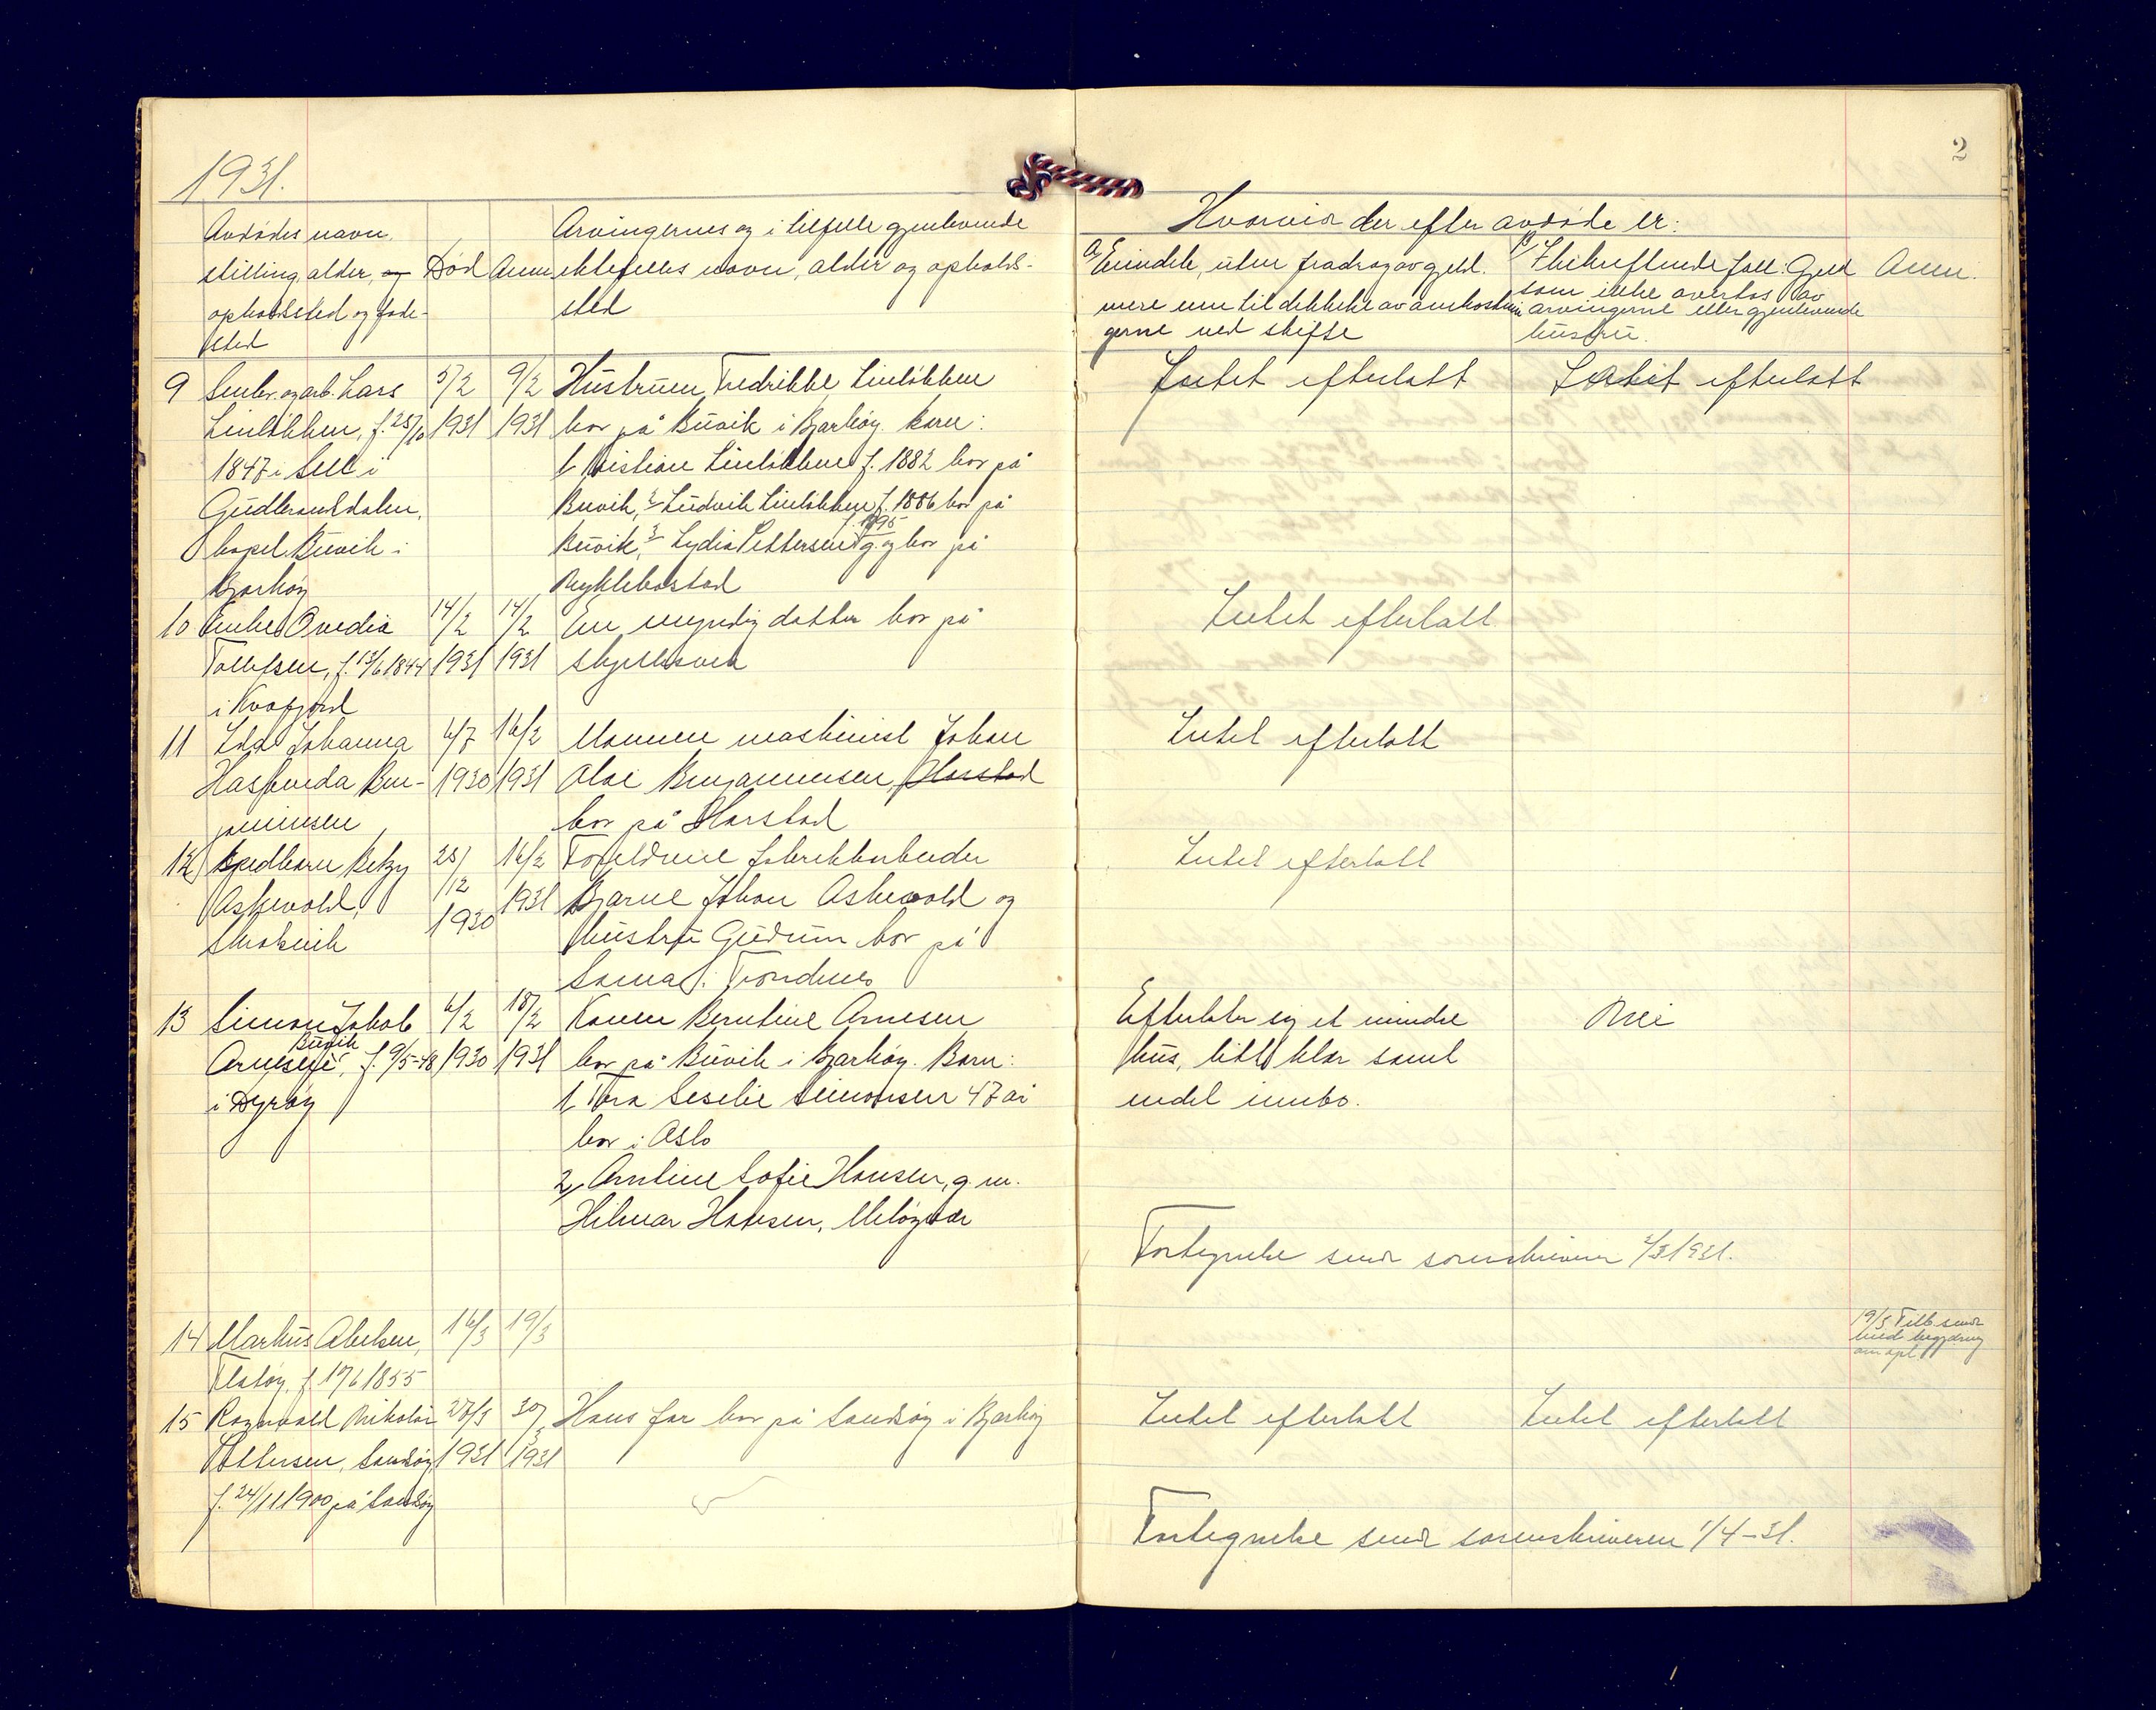 1931.
2
Avdødes navn,
stilling, alder, og
opholdssted og føde-
sted
Død
Anm
Arvingernes og i tilfelle gjenlevende
ektefelles navn, alder og opholds-
sted
Hvorvidt der efter avdøde er:
a/ Eiendele, uten fradrag av gjeld.
mere enn til dekkelse av omkostnin
gerne ved skifte
b/ I bekreftende fall: Gjeld
som ikke overtas av
arvingerne eller gjenlevende
hustru.
Anm.
9 Smbr. og arb. Lars
Linløkken, f. 25/10
1847 i Sell i
Gudbransdalen,
bopel Buvik i
Bjarkøy
5/2
1931
9/2
1931
Hustruen Fredrikke Linløkken
bor på Buvik i Bjarkøy. barn:
1, Kristian Linløkken f. 1882 bor på
Buvik, 2, Ludvik Linløkken f. 1886 bor på
f. 1895
Buvik, 3, Lydia Pettersen g. og bor på
Nyklebostad
Intet efterlatt
Intet efterlatt
10 Enke Ovedia
Tollefsen, f. 13/6 1844
i Kvæfjord
14/2
1931
14/2
1931
En myndig datter bor på
Skjellesvik
Intet efterlatt
11 Ida Johanna
Hasfreda Ben-
jaminsen
6/7
1930
16/2
1931
Mannen maskinist Johan
Olai Benjaminsen, Harstad
bor på Harstad
Intet efterlatt
12 Spedbarn Betzy
Askevold,
25/
12
1930
16/2
1931
Foreldrene fabrikkarbeider
Bjarne Johan Askevold og
hustru Gudrun bor på
Sama i Trondenes
Intet efterlatt
13 Simon Jakob
Buvik
Arnesen, f. 9/5-48
i Dyrøy
6/2
1930
18/2
1931
Konen Berntine Arnesen
bor på Buvik i Bjarkøy. Barn:
1, Tora Seselie Simonsen 47 år
bor i Oslo
2, Arntine Sofie Hansen, g. m.
Hilmar Hansen, Meløyvær
Efterlater sig et mindre
hus, litt klær samt
endel innbo.
Nei
Fortegnelse sendt sorenskriveren 2/3 1931.
14 Markus Abelsen,
Flatøy, f. 17/6 1855
16/3
19/3
19/3 Tilb. sendt
med begjæring
om opl.
15 Ragnvald Nikolai
Pettersen, Sandsøy
f. 24/11 1900 på Sandsøy
28/3
1931
30/3
1931
Hans far bor på Sandsøy i Bjarkøy
Intet efterlatt
Intet efterlatt
Fortegnelse sendt sorenskriveren 1/4-31.